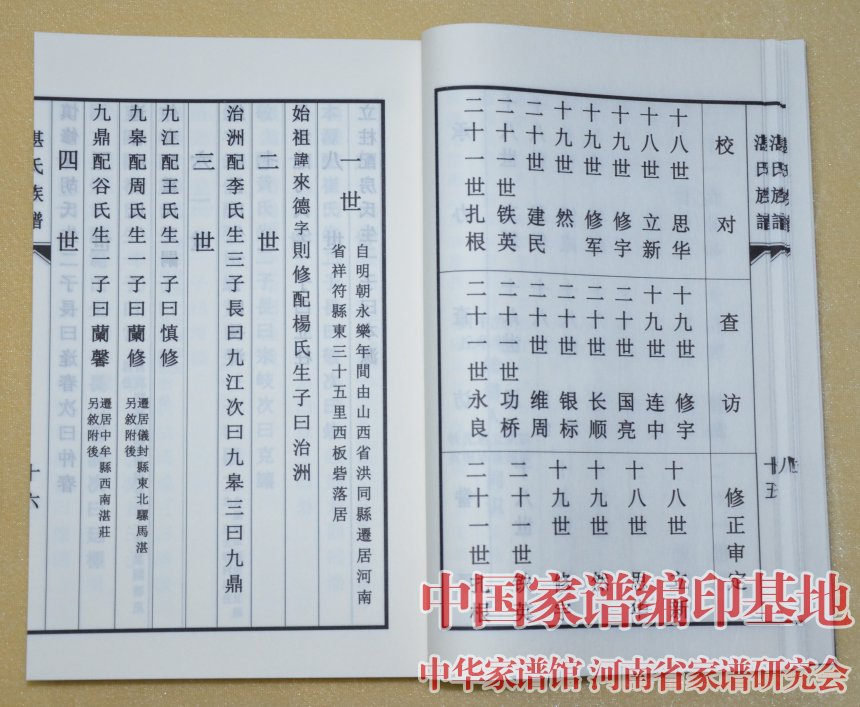 湛氏族譜
十五
校对
十八世 思华
十八世 立新
十九世 修宇
十九世 修军
十九世 然
二十世 建民
二十世 铁英
二十一世 扎根
查访
十九世 修宇
十九世 连中
二十世 国亮
二十世 长顺
二十世 银标
二十世 维周
二十世 功桥
二十一世 永良
修正审定
十八世 立新
十八世 思华
十九世 然
十九世 修军
二十世 铁英
二十一世 扎根
一世
自明朝永樂年間由山西省洪同縣遷居河南
省祥符縣東三十五里西板砦落居
始祖諱來德字則修配楊氏生子曰治洲
二世
治洲配李氏生三子長曰九江次曰九皋三曰九鼎
三世
九江配王氏生嗣子曰慎修
九皋配周氏生一子曰蘭修
遷居儀封縣東北騾馬湛
另敘附後
九鼎配谷氏生一子曰蘭馨
遷居中牟縣西南湛莊
另敘附後
四世
湛氏族譜
十六
中国家谱编印基地
中华家谱馆 河南省家谱研究会